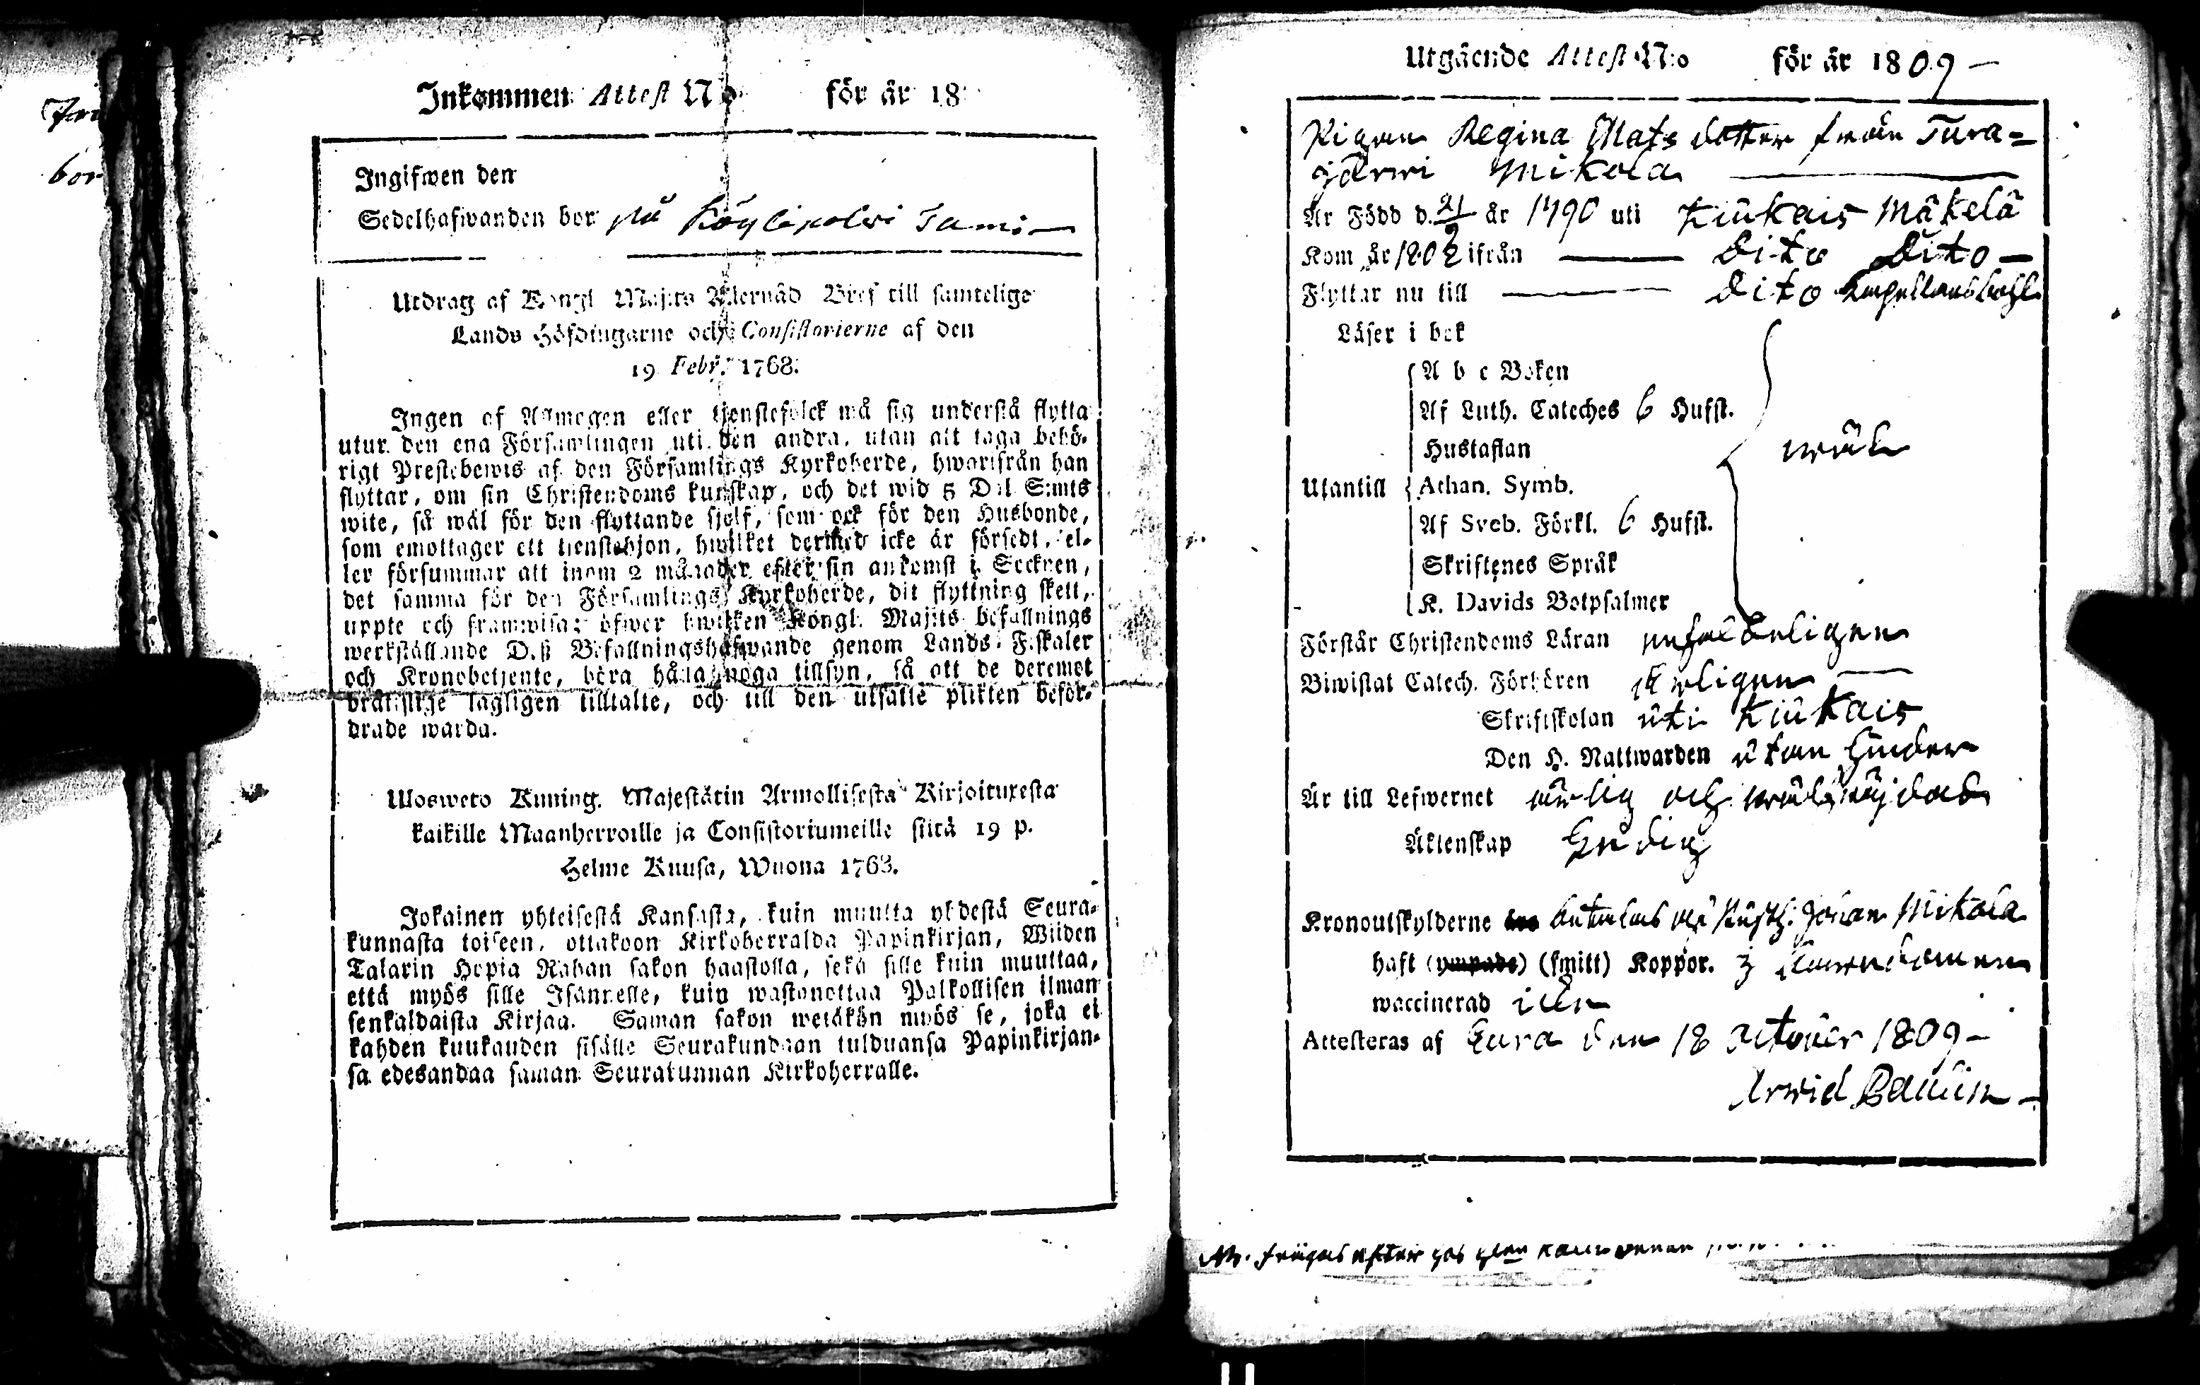 Inkommen Attest N:o för år 18
Ingifwen den
Sedelhafwanden bor på Köylipolwi Tami
Utdrag af Kongl. Maj:ts Allernåd. Bref till samtelige
Lands Höfdingarne och Consistorierne af den
19 Febr. 1768.
Ingen af Allmogen eller tjenstefolck må sig understå flytta
utur den ena Församlingen uti den andra, utan att taga behö-
rigt Prestebewis af den Församlings Kyrkoherde, hwarifrån han
flyttar, om sin Christendoms kunskap, och det wid 5 Dal. S:mts
wite, så wäl för den flyttande sjelf, som ock för den Husbonde,
som emottager ett tienstehjon, hwilket dermed icke är försedt, el-
ler försummar att inom 2 månader efter sin ankomst i Socknen,
det samma för den Församlings Kyrkoherde, dit flyttning skett,
uppte och framwisa; öfwer hwilken Kongl. Maj:ts befallnings
werkställande D.ß Befallningshafwande genom Lands-Fiskaler
och Kronobetjente, böra hålla noga tillsyn, så att de deremot
bråtslige lagligen tilltalte, och till den utsatte plikten beför-
drade warda.
Ulosweto Kuning. Majestätin Armollisesta Kirjoituxesta
kaikille Maanherroille ja Consistoriumeille siitä 19 p.
Helme Kuusa, Wuona 1768.
Jokainen yhteisestä Kansasta, kuin muutta yhdestä Seura-
kunnasta toiseen, ottakoon Kirkoherralda Papinkirjan, Wiiden
Talarin Hopia Rahan sakon haastolla, sekä sille kuin muuttaa,
että myös sille Isännelle, kuin wastanottaa Palkollisen ilman
senkaldaista Kirjaa. Saman sakon wetäkön myös se, joka ei
kahden kuukauden sisälle Seurakundaan tulduansa Papinkirjan-
sa edesandaa saman Seurakunnan Kirkoherralle.
Utgående Attest N:o för år 1809
Pigan Regina Mats dotter från Tura-
järwi Mikola
Är Född d. 21/9 år 1790 uti Kiukais Mäkelä
Kom år 1802 ifrån Dito Dito
Flyttar nu till Dito Capellansbohl
Läser i bok
A b c Boken
Af Luth. Cateches 6 Hufst.
Hustaflan
wäl
Utantill
Athan. Symb.
Af Sveb. Förkl. 6 Hufst.
Skriftenes Språk
K. Davids Botpsalmer
Förstår Christendoms Läran
Biwistat Catech. Förhören årligen
Skriftskolan uti Kiukais
Den H. Nattwarden utan hinder
Är till Lefwernet ärlig och wäl
Äktenskap ledig
Kronoutskylderne betalas på Rusth. Johan Mikola
haft (ympade) (smitt) Koppor.
waccinerad
Attesteras af Eura den 18 October 1809
Arwid Paulin